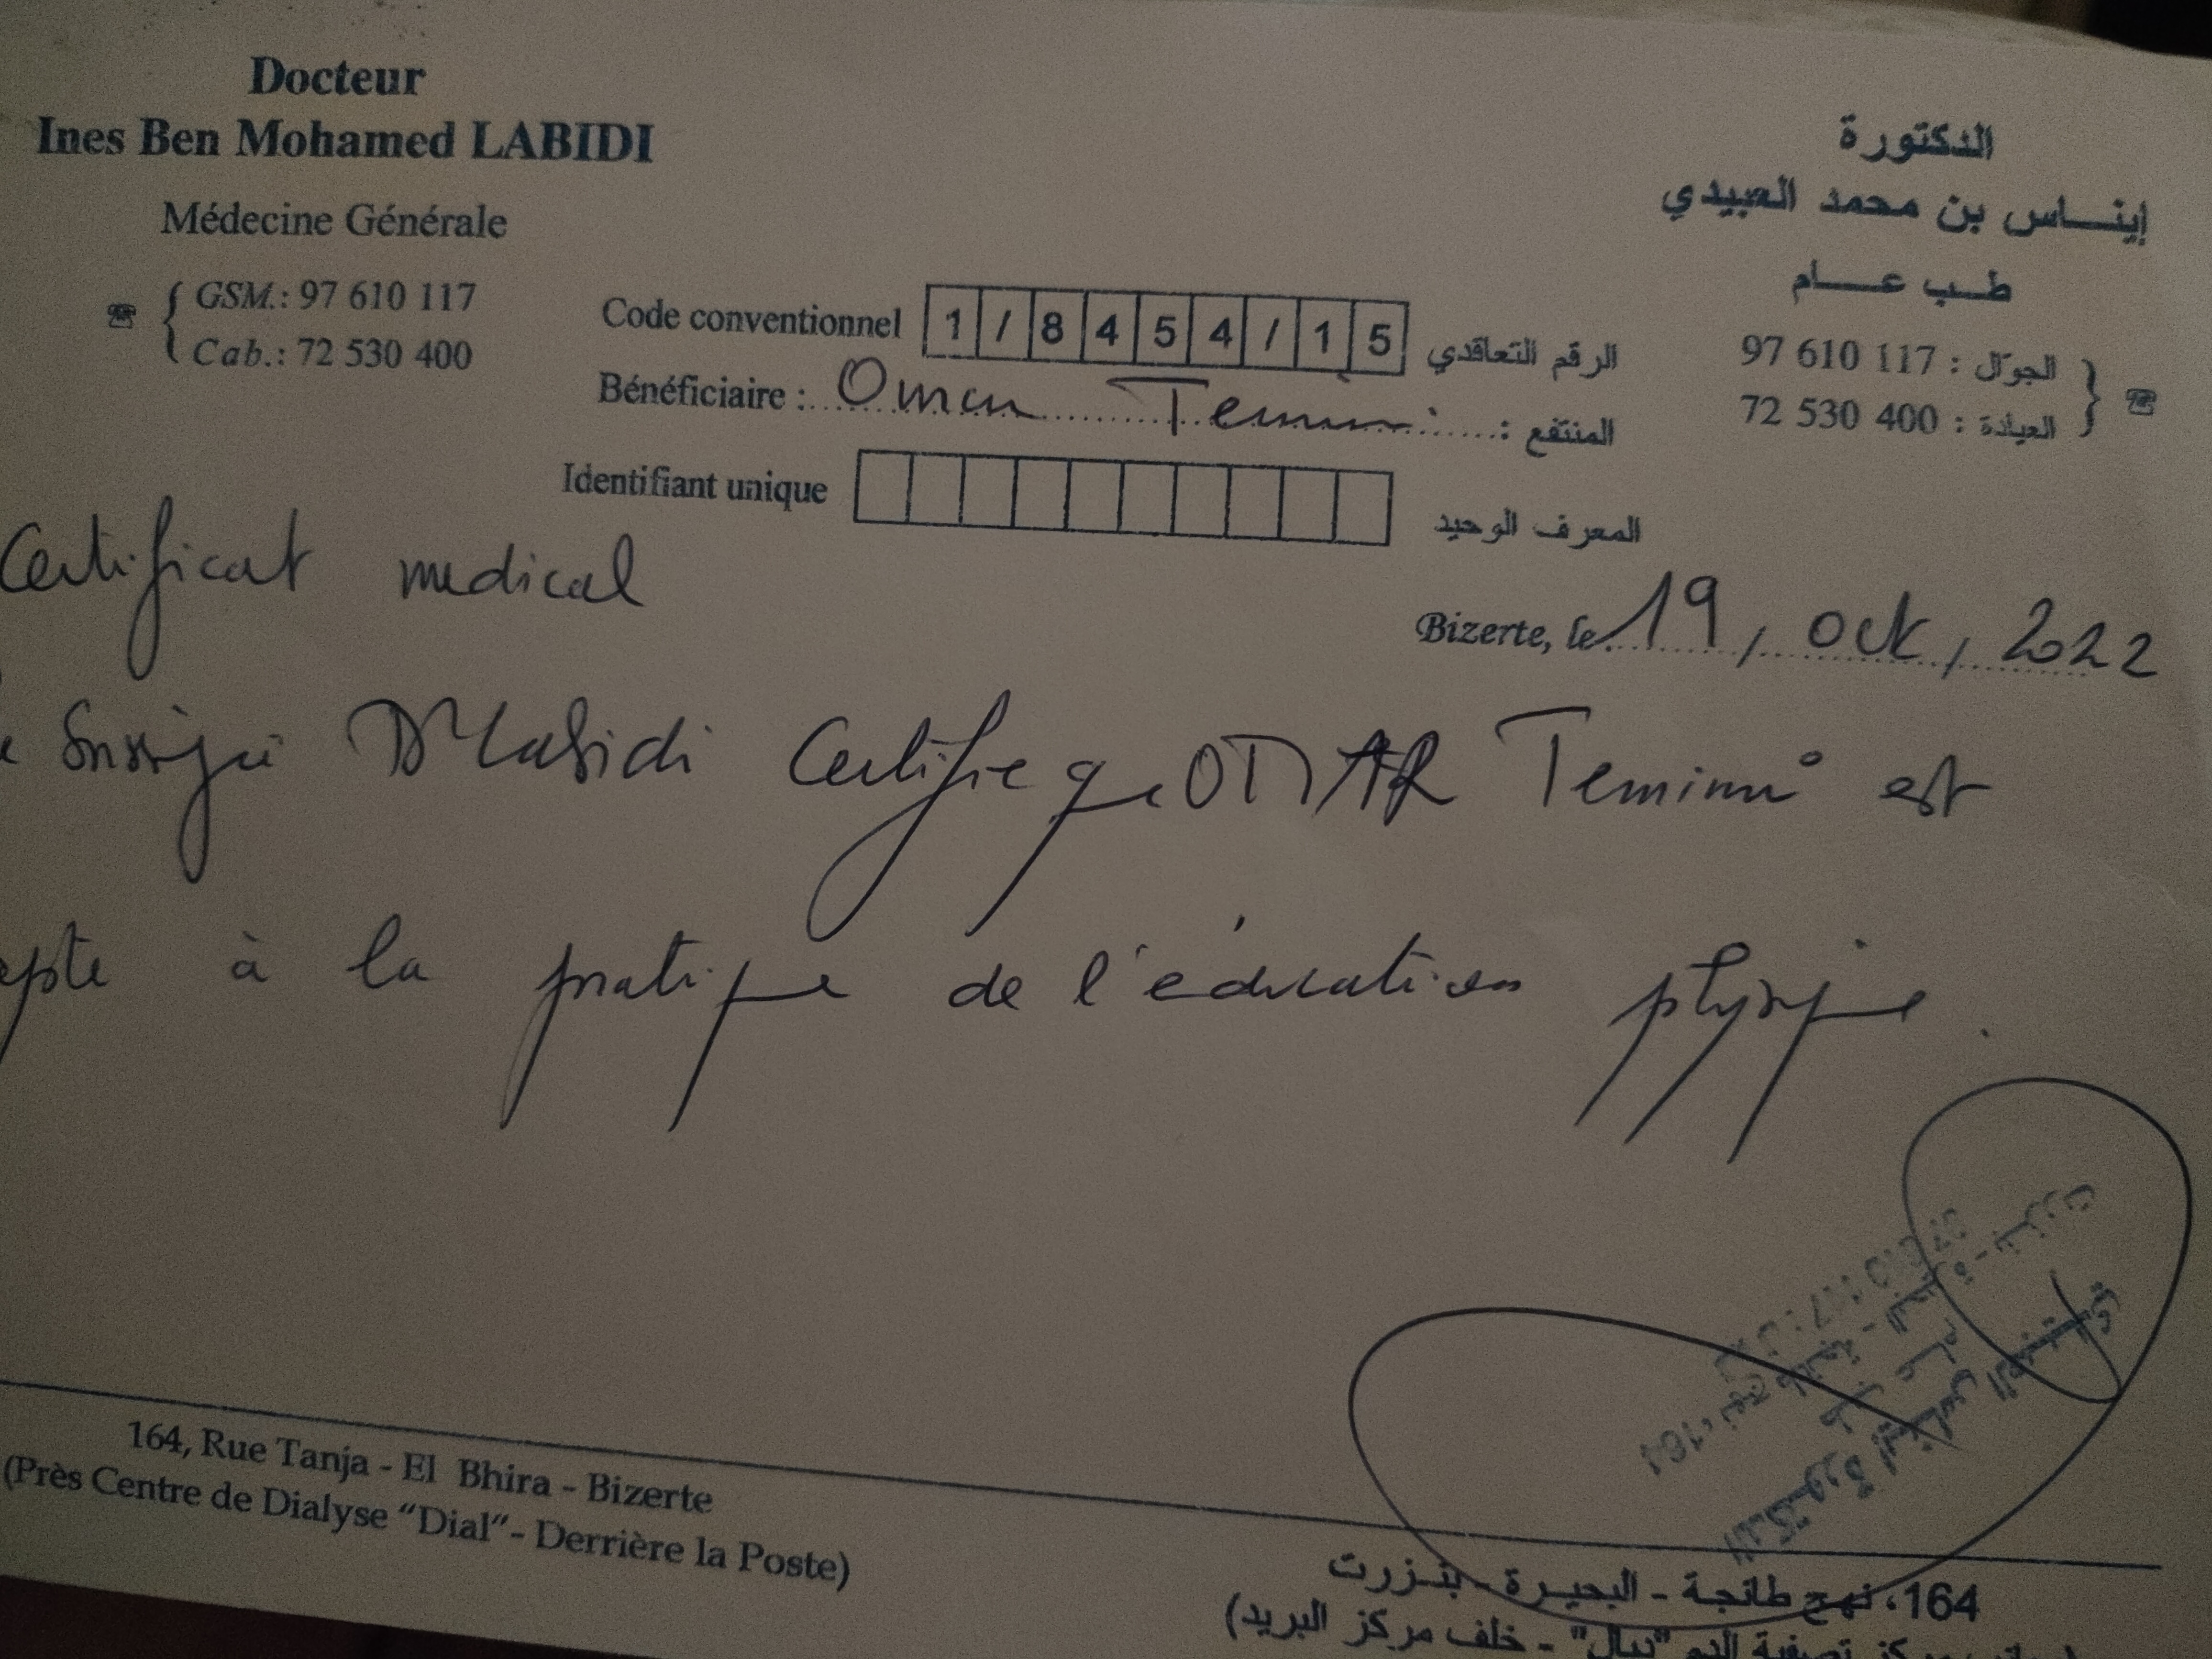 Docteur
Ines Ben Mohamed LABIDI
Médecine Générale
GSM.: 97 610 117
Cab.: 72 530 400
الدكتورة
إينـــاس بن محمد العبيدي
طــب عــــام
الجوّال : 117 610 97
العيادة : 400 530 72
Code conventionnel 1/8454/15 الرقم التعاقدي
Bénéficiaire : Omar Temimi المنتفع :
Identifiant unique المعرف الوحيد
Certificat medical
Bizerte, le 19, oct, 2022
Dr Labidi Certifie que OMAR Temimi est
à la pratique de l'éducation physique.
164, Rue Tanja - El Bhira - Bizerte
(Près Centre de Dialyse "Dial" - Derrière la Poste)
164، نهج طانجة - البحيـرة - بنـزرت
مركز تصفية الدم "ديال" - خلف مركز البريد)